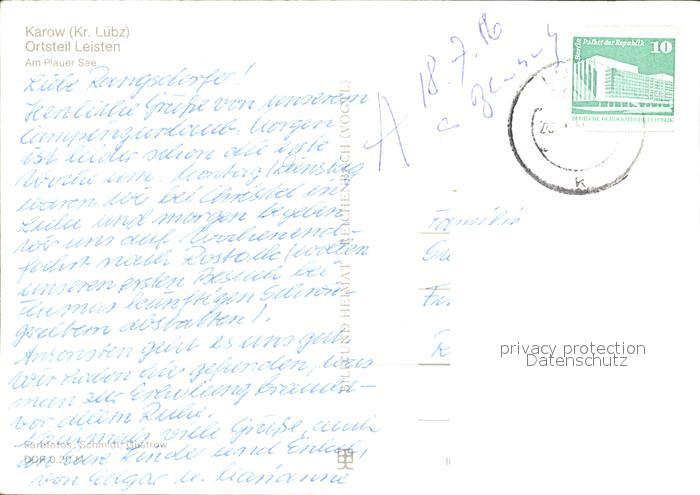 Karow (Kr. Lübz)
Ortsteil Leisten
Am Plauer See
Liebe Rangsdorfer!
Herzliche Grüße von unserem
Campingurlaub. Morgen
ist leider schon die erste
Woche um. Montag/Dienstag
waren wir bei Christel in
Lübz und morgen begeben
wir uns auf Wochenend-
fahrt nach Rostock (wollen
unseren ersten Besuch bei
künftigen Schwie-
gereltern abstatten)!
Ansonsten geht es uns gut.
Wir haben hier gefunden, was
man zur Erholung braucht –
vor allem Ruhe.
Nochmals viele Grüße, auch
an die Kinder und Enkel!
von u. Marianne
Farbfotos: Schmidt, Güstrow
DDR 0,20 M
BILD UND HEIMAT REICHENBACH (VOGTL)
A 18.7.86
Berlin Palast der Republik 10
DEUTSCHE DEMOKRATISCHE REPUBLIK
k
Familie
privacy protection
Datenschutz